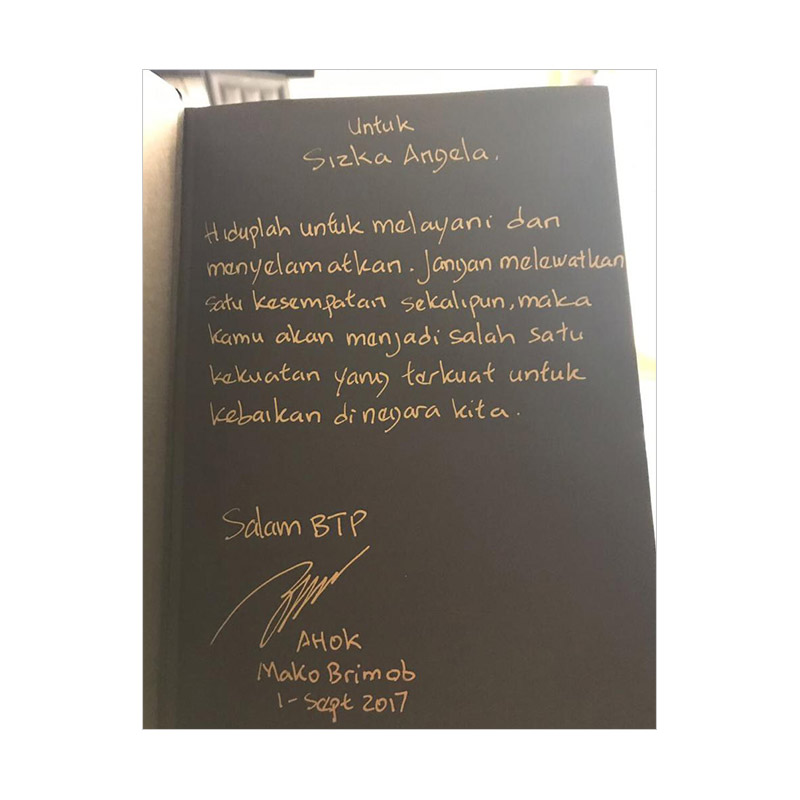 Untuk
Sizka Angela.
Hiduplah untuk melayani dan
menyelamatkan. Jangan melewatkan
satu kesempatan sekalipun, maka
kamu akan menjadi salah satu
kekuatan yang terkuat untuk
kebaikan di negara kita.
Salam BTP
AHOK
Mako Brimob
1-Sept 2017